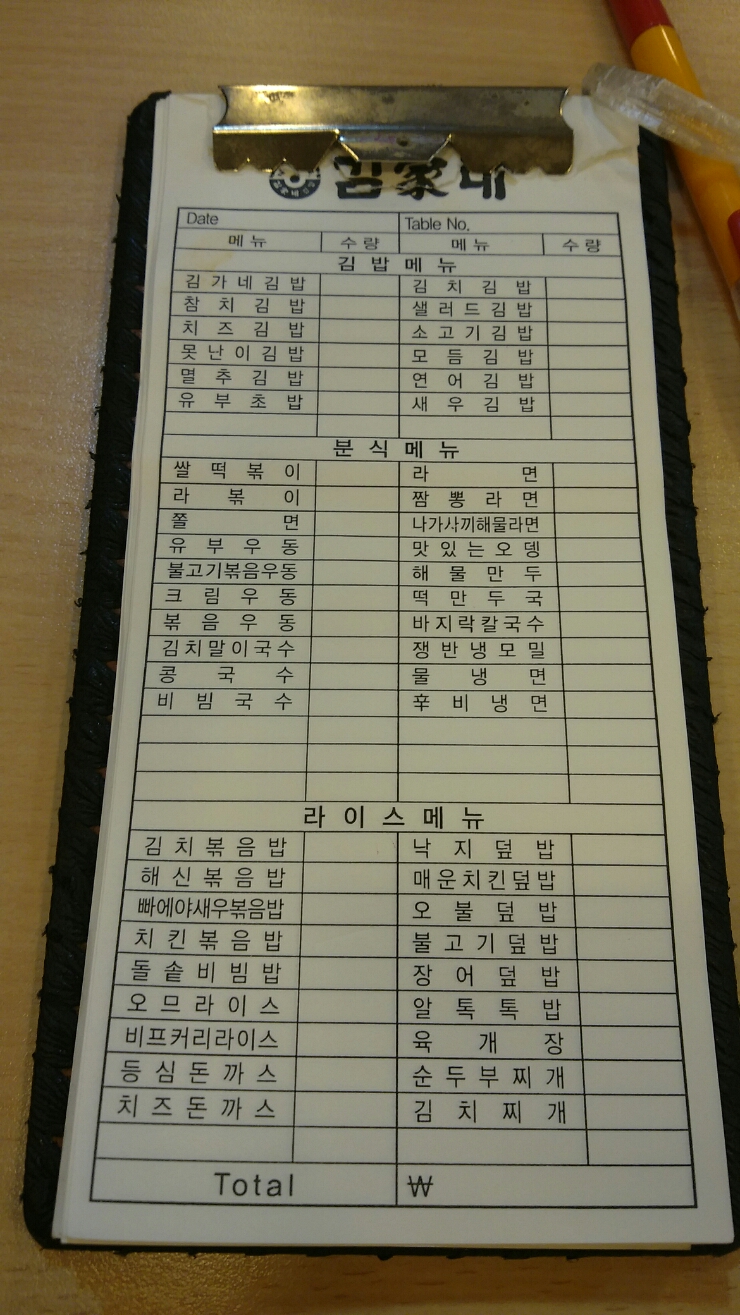 김家네
Date Table No.
메뉴 수량 메뉴 수량
김밥메뉴
김가네김밥 김치김밥
참치김밥 샐러드김밥
치즈김밥 소고기김밥
못난이김밥 모듬김밥
멸추김밥 연어김밥
유부초밥 새우김밥
분식메뉴
쌀떡볶이 라면
라볶이 짬뽕라면
쫄면 나가사끼해물라면
유부우동 맛있는오뎅
불고기볶음우동 해물만두
크림우동 떡만두국
볶음우동 바지락칼국수
김치말이국수 쟁반냉모밀
콩국수 물냉면
비빔국수 후비냉면
라이스메뉴
김치볶음밥 낙지덮밥
해신볶음밥 매운치킨덮밥
빠에야새우볶음밥 오불덮밥
치킨볶음밥 불고기덮밥
돌솥비빔밥 장어덮밥
오므라이스 알톡톡밥
비프커리라이스 육개장
등심돈까스 순두부찌개
치즈돈까스 김치찌개
Total ₩